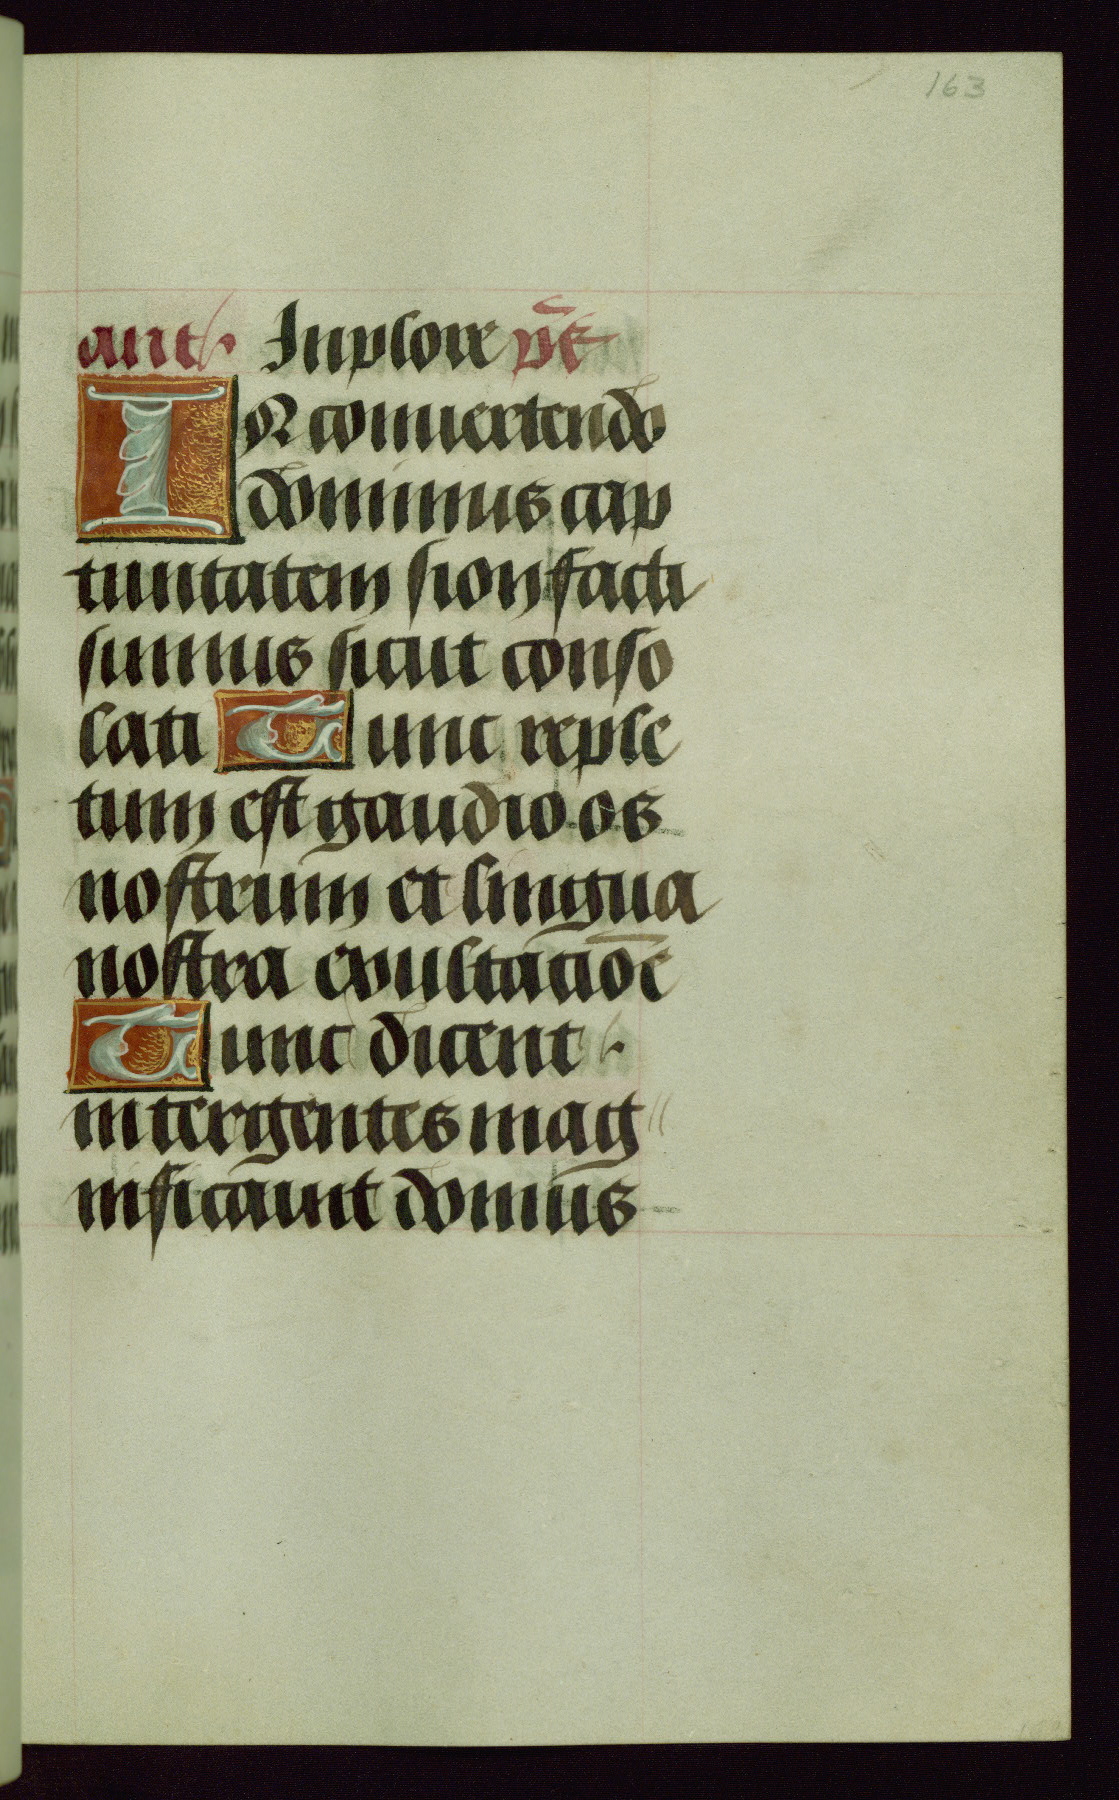 163
ant. Inplore p̄s
IN conuertendo
dominus cap
tiuitatem sion facti
sumus sicut conso
lati Tunc reple
tum est gaudio os
nostrum et lingua
nostra exultatiōe
Tunc dicent
inter gentes mag
nificauit domīus